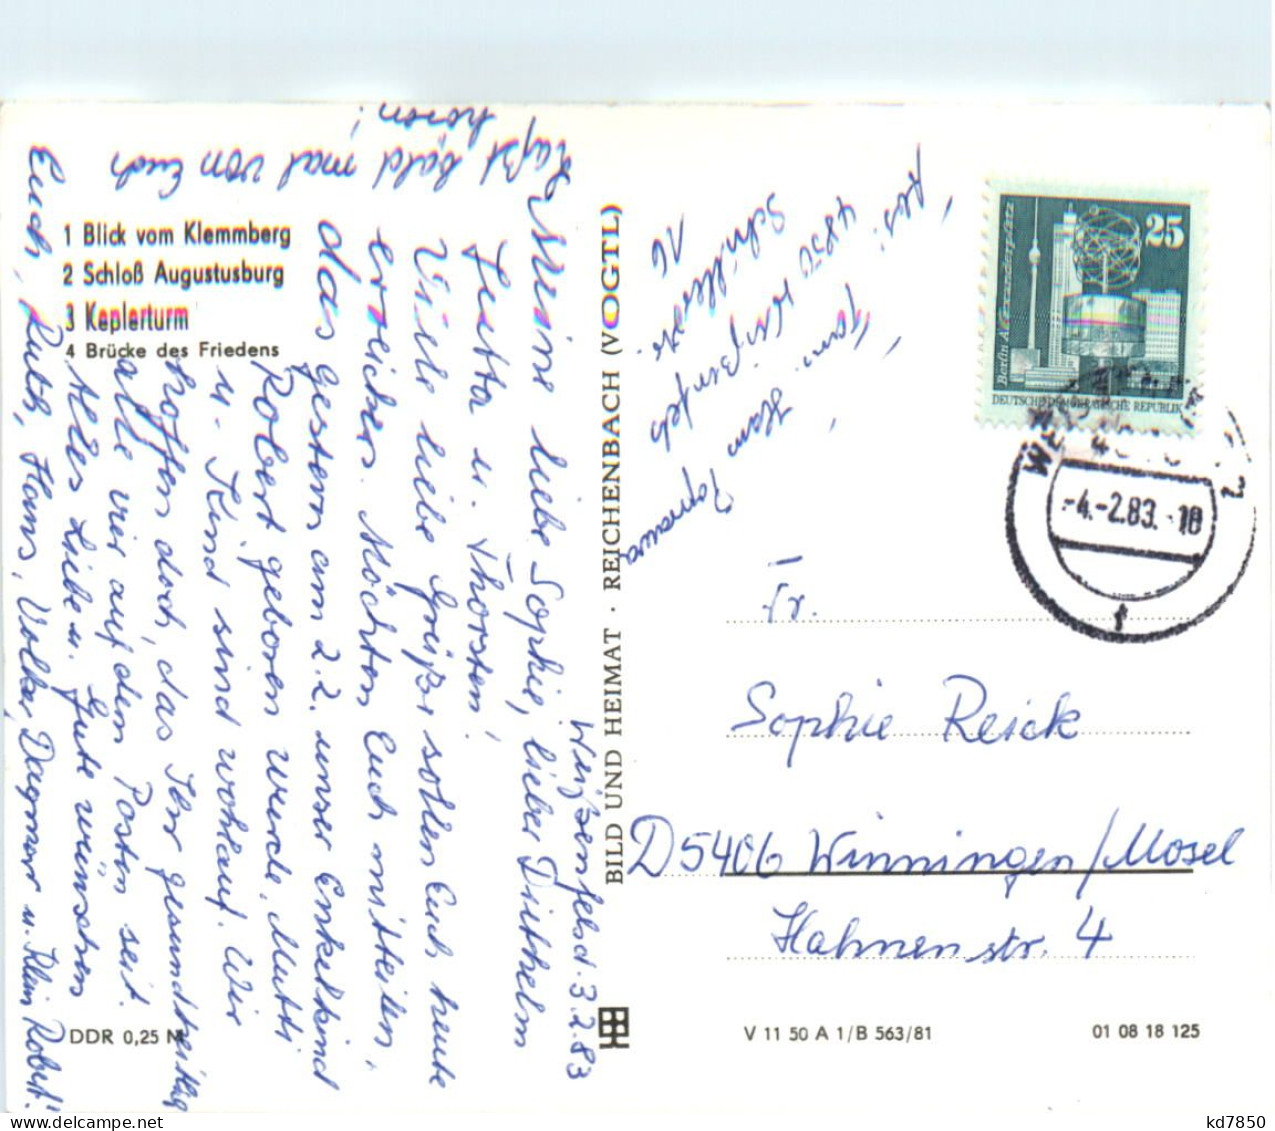 1 Blick vom Klemmberg
2 Schloß Augustusburg
3 Keplerturm
4 Brücke des Friedens
Weißenfels d. 3.2.83
Meine liebe Sophie, lieber Diethelm
Jutta u. Thorsten!
Viele liebe Grüße sollen Euch heute
erreichen. Möchten Euch mitteilen,
das gestern am 2.2. unser Enkelkind
Robert geboren wurde. Mutti
u. Kind sind wohlauf. Wir
hoffen doch, das Ihr gesundheitlig
alle vier auf dem Posten seit.
Alles Liebe u. Gute wünschen
Euch, Ruth, Hans, Volker, Dagmar u. Klein Robert!
Laßt bald mal von Euch
hören!
DDR 0,25 M
BILD UND HEIMAT · REICHENBACH (VOGTL)
Abs.
Fam. Hans
4850 Weißenfels
16
25
Berlin Alexanderplatz
DEUTSCHE DEMOKRATISCHE REPUBLIK
-4.-2.83.-18
1
Fr.
Sophie Reick
D5406 Winningen/Mosel
Hahnenstr. 4
V 11 50 A 1/B 563/81
01 08 18 125
kd7850